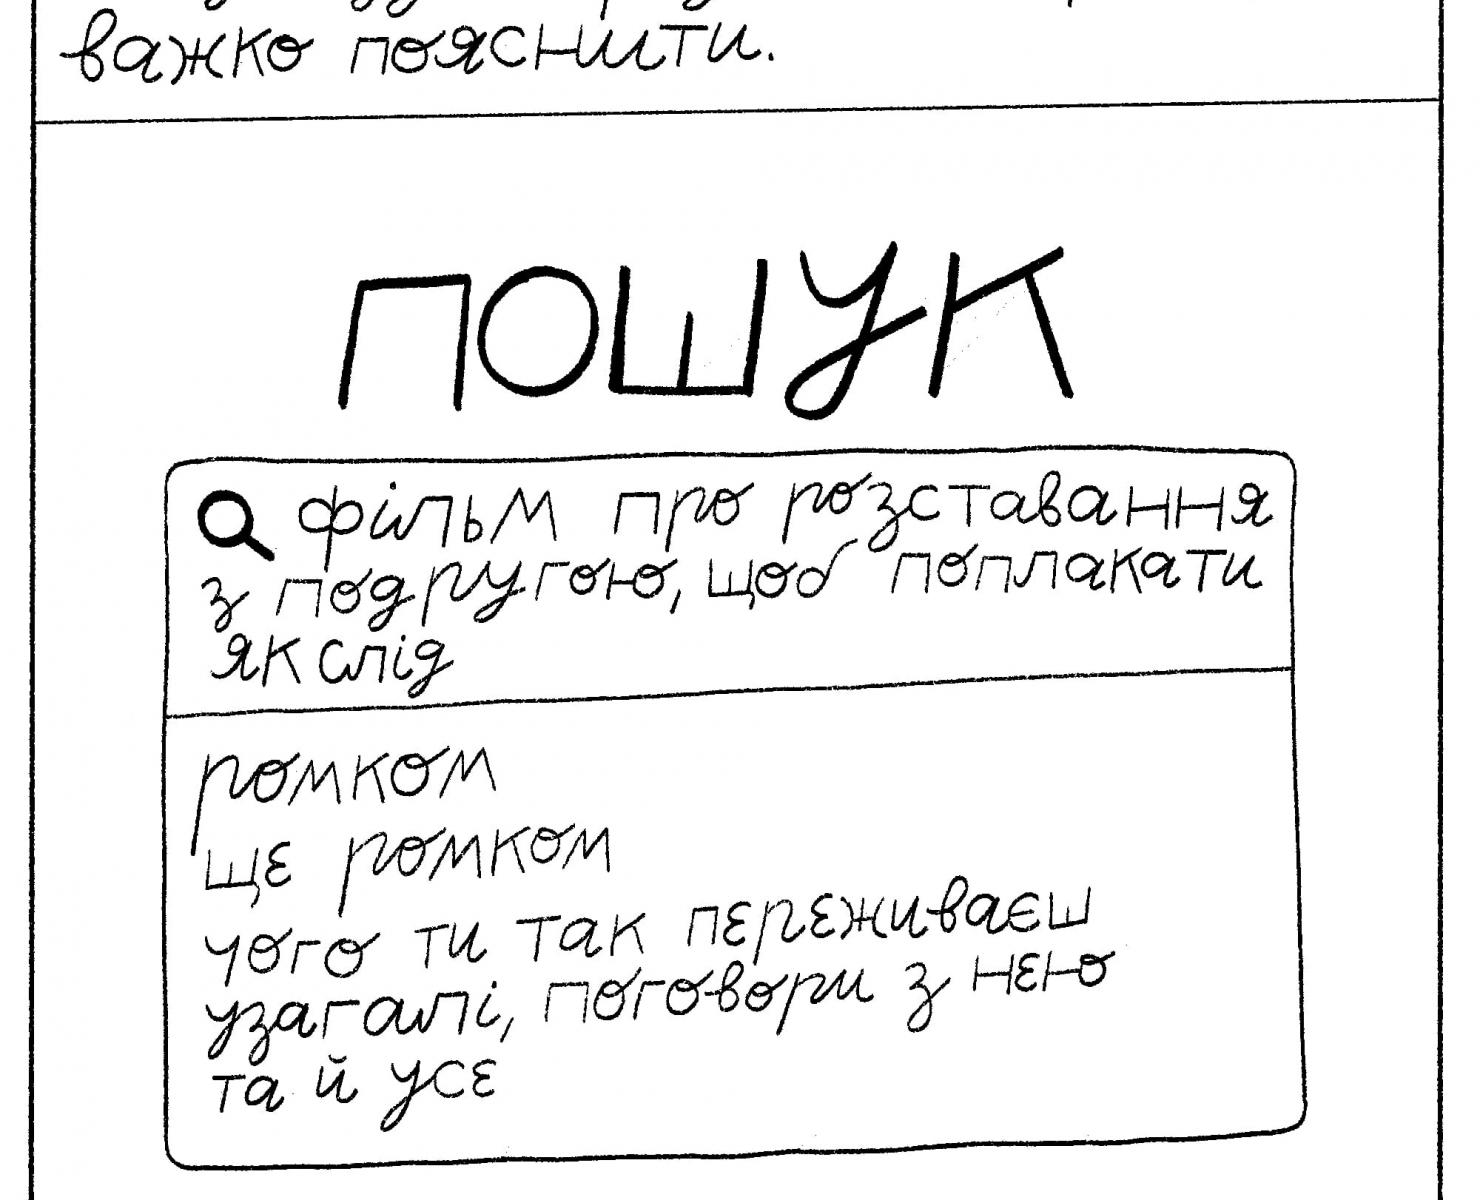 важко пояснити.
ПОШУК
фільм про розставання
з подругою, щоб поплакати
як слід
ромком
ще ромком
чого ти так переживаєш
узагалі, поговори з нею
та й усе